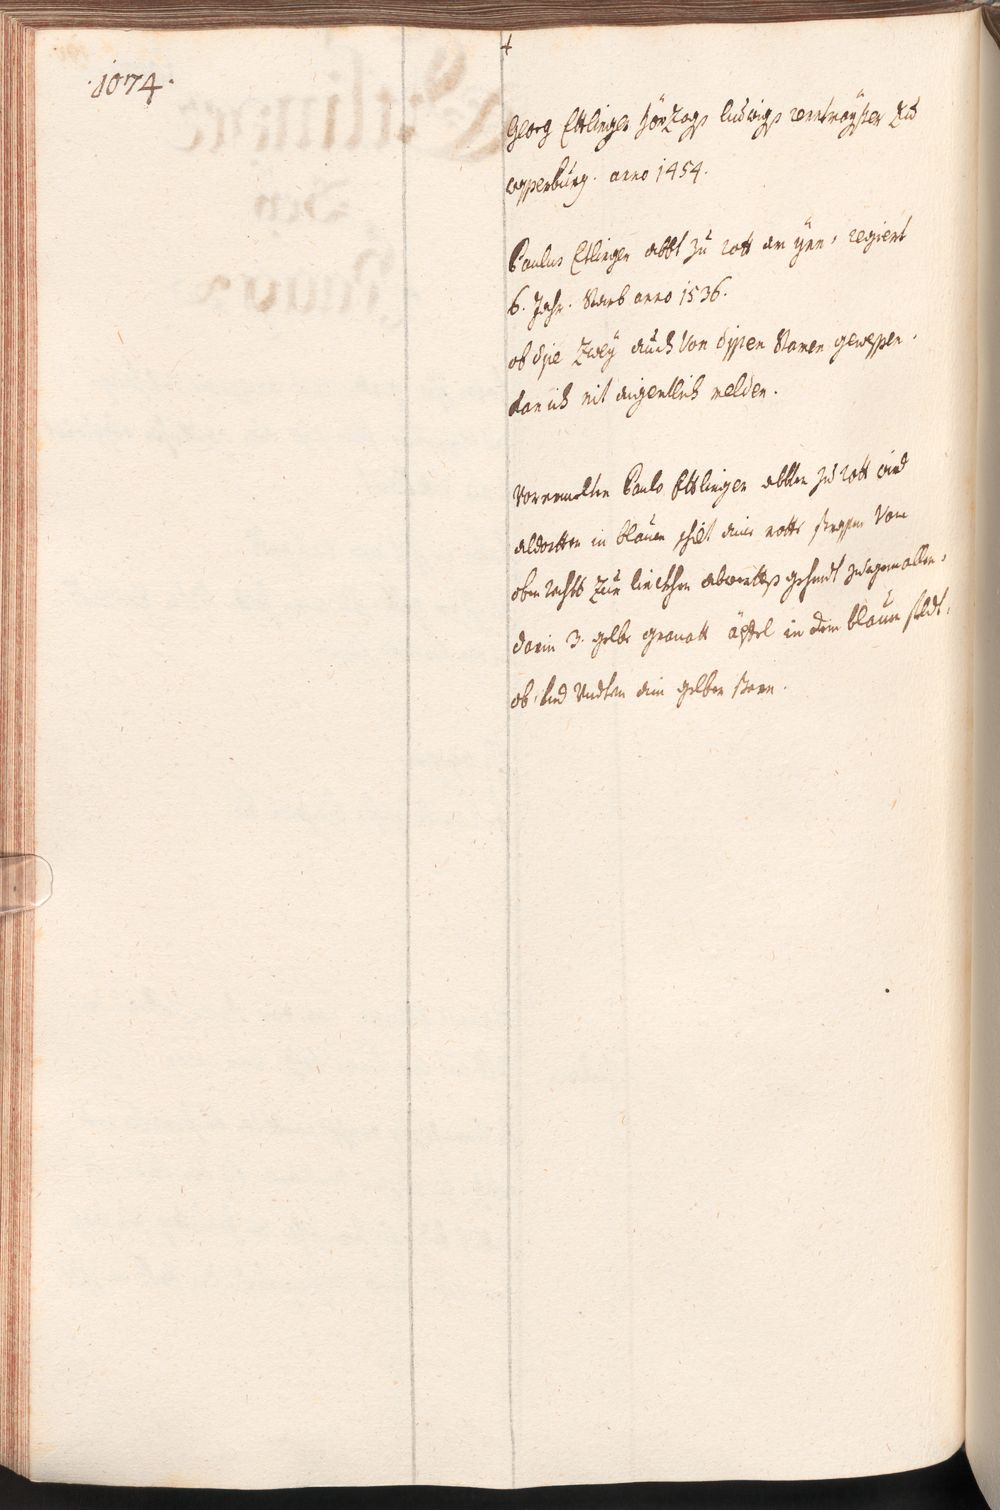 .1074.
Georg Ettlinger hörzogs ludwigs rentmayster zu
wasserburg. anno 1454.
Paulus Etlinger abbt zu rott am ynn, regiert
6. Jahr. starb anno 1536.
ob dise zwey auch von disen stamen gewessen.
kan ich nit aigentlich melden.
Vorermelten Paulo Ettlinger abbten zu rott wird
aldortten in blauen schilt ain rotte strassen Von
oben rechts zur linckhen abwerths gehend zuegemallen,
darin 3. gelbe granatt äpffel in dem blauen feldt,
ob, und undten ain gelben stern.